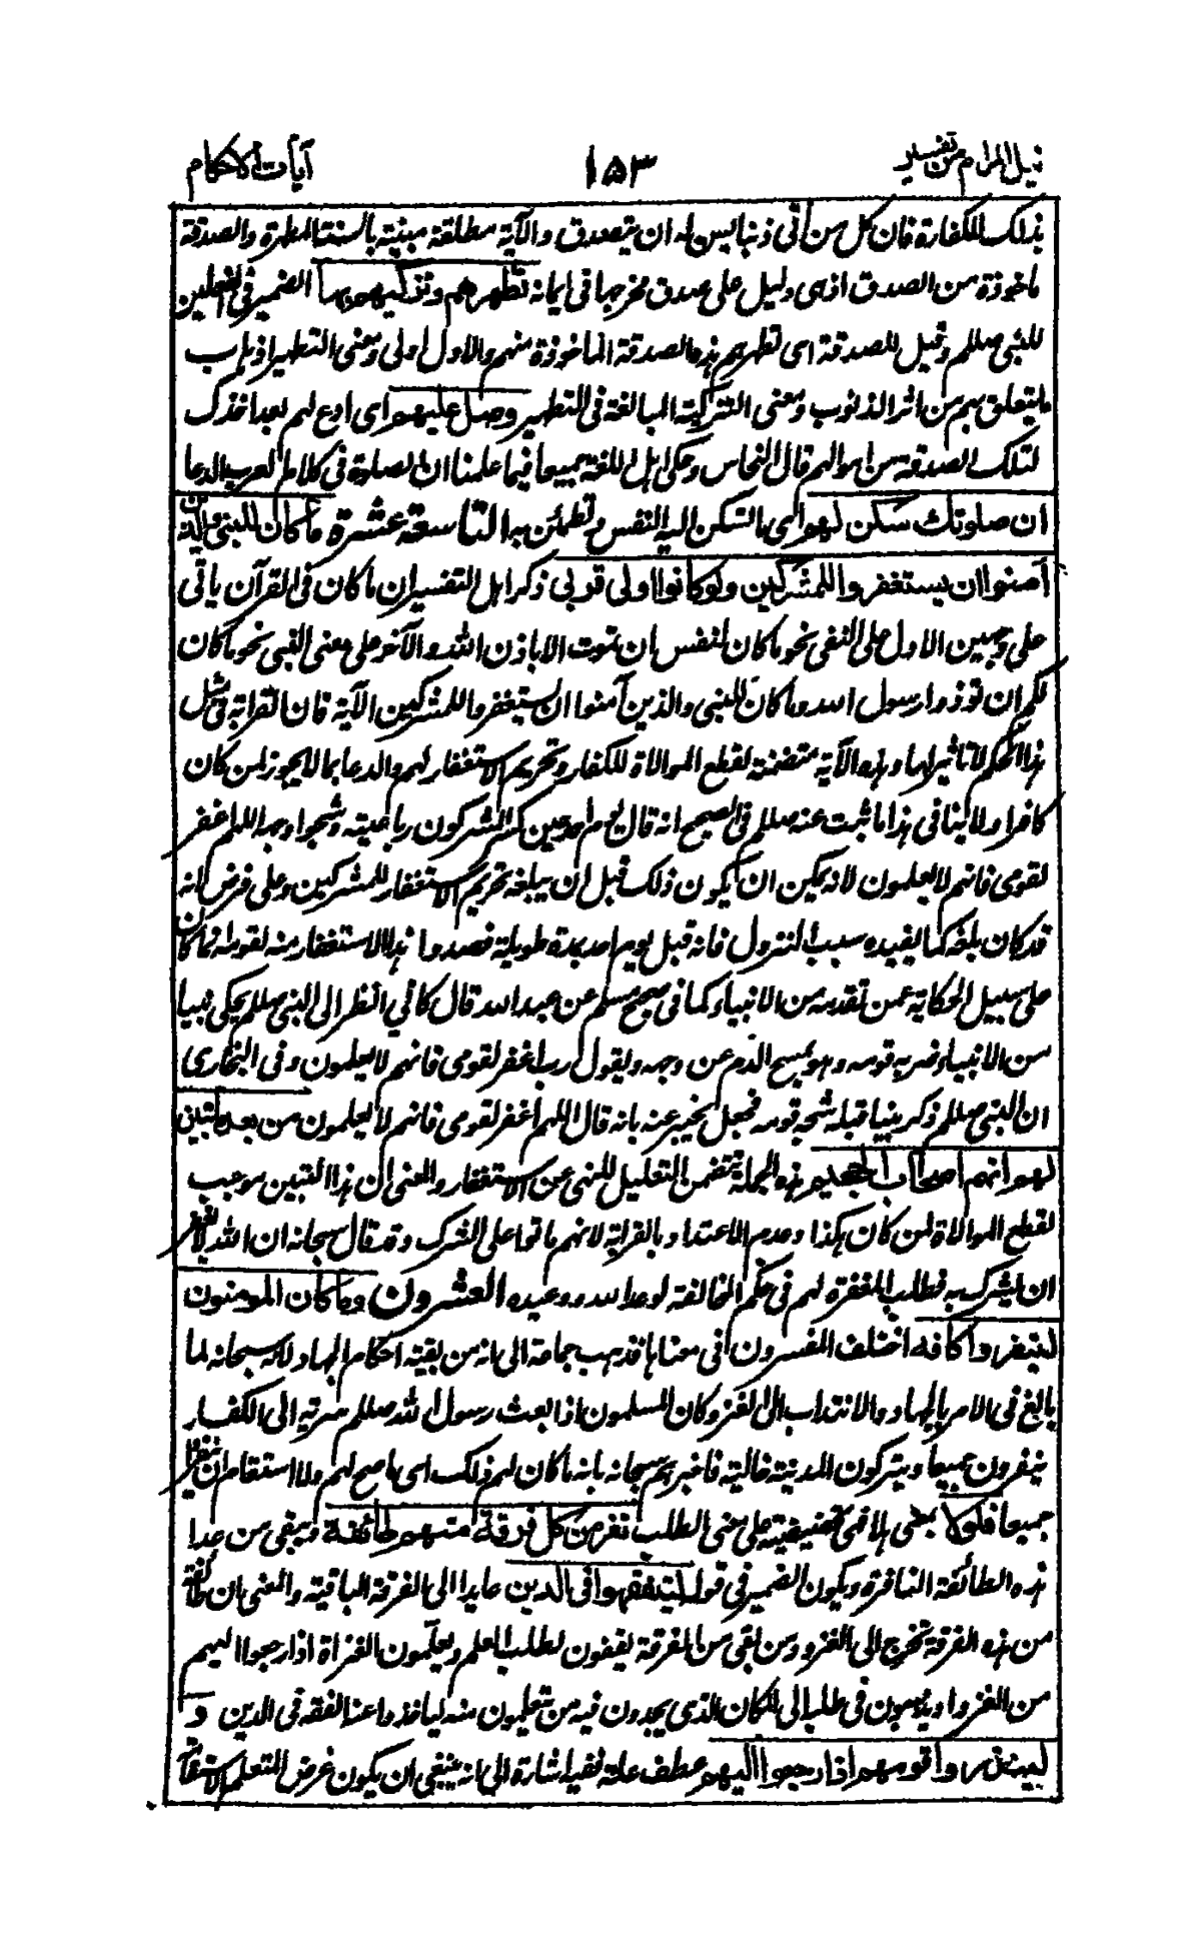 نيل المرام من تفسير
١٥٣
آيات الاحكام
بذلك للكفارة فان كل من اتى ذنبا يسن له ان يتصدق والآية مطلقة مبينة بالسنة المطهرة والصدقة
ماخوذة من الصدق اذ هى دليل على صدق مخرجها فى ايمانه تطهرهم وتزكيهم بها الضمير فى الفعلين
للنبى صللم وقيل للصدقة اى تطهرهم هذه الصدقة الماخوذة منهم والاول اولى ومعنى التطهير اذهاب
ما يتعلق بهم من اثر الذنوب ومعنى التزكية المبالغة فى التطهير وصل عليهم اى ادع لهم بعد اخذك
لتلك الصدقة من اموالهم قال النحاس وحكى اهل اللغة جميعا فيما علمنا ان الصلوة فى كلام العرب الدعا
ان صلوتك سكن لهم اى ما تسكن اليه النفس وتطمئن به التاسعة عشرة ما كان للنبى والذين
آمنوا ان يستغفروا للمشركين ولو كانوا اولى قربى ذكر اهل التفسير ان ما كان فى القرآن ياتى
على وجهين الاول على النفى نحو ما كان لنفس ان تموت الا باذن الله والآخر على معنى النهى نحو ما كان
لكم ان توذوا رسول الله وما كان للنبى والذين آمنوا ان يستغفروا للمشركين الآية فان القرابة فى مثل
هذا الحكم لا تاثير لها وهذه الآية متضمنة لقطع الموالاة للكفار وتحريم الاستغفار لهم والدعا بما لا يجوز لمن كان
كافرا ولا ينافى هذا ما ثبت عنه صللم فى الصحيح انه قال يوم احد حين كسر المشركون رباعيته وشجوا وجهه اللهم اغفر
لقومى فانهم لا يعلمون لانه يمكن ان يكون ذلك قبل ان يبلغه تحريم الاستغفار للمشركين وعلى فرض انه
قد كان بلغه كما يفيده سبب النزول فانه قبل يوم احد بمدة طويلة فصدور هذا الاستغفار منه لقومه انما كان
على سبيل الحكاية عمن تقدمه من الانبياء كما فى صحيح مسلم عن عبدالله قال كانى انظر الى النبى صللم يحكى نبيا
من الانبياء ضربه قومه وهو يمسح الدم عن وجهه ويقول رب اغفر لقومى فانهم لا يعلمون وفى البخارى
ان النبى صللم ذكر نبيا قبله شجه قومه فجعل يخبر عنه بانه قال اللهم اغفر لقومى فانهم لا يعلمون من بعد ما تبين
لهم انهم اصحاب الجحيم هذه الجملة تتضمن التعليل للنهى عن الاستغفار والمعنى ان هذا التبين موجب
لقطع الموالاة لمن كان هكذا وعدم الاعتداد بالقرابة لانهم ماتوا على الشرك وقد قال سبحانه ان الله لا يغفر
ان يشرك به فطلب المغفرة لهم فى حكم المخالفة لوعد الله ووعيده العشرون وما كان المومنون
لينفروا كافة اختلف المفسرون فى معناها فذهب جماعة الى انه من بقية احكام الجهاد لانه سبحانه لما
بالغ فى الامر بالجهاد والانتداب الى الغزو كان المسلمون اذا بعث رسول الله صللم سرية الى الكفار
ينفرون جميعا ويتركون المدينة خالية فاخبرهم سبحانه بانه ما كان لهم ذلك اى ما صح لهم ولا استقام ان ينفروا
جميعا فلولا بمعنى هلا فهى تحضيضية على معنى الطلب نفر من كل فرقة منهم طائفة ويبقى من عدا
هذه الطائفة النافرة ويكون الضمير فى قوله ليتفقهوا فى الدين عايدا الى الفرقة الباقية والمعنى ان طائفة
من هذه الفرقة تخرج الى الغزو ومن بقى من الفرقة يقفون لطلب العلم ويعلمون الغزاة اذا رجعوا اليهم
من الغزو او يذهبون فى طلبه الى المكان الذى يجدون فيه من يتعلمون منه لياخذوا عنه الفقه فى الدين و
لينذروا قومهم اذا رجعوا اليهم عطف علة ففيه اشارة الى انه ينبغى ان يكون غرض المتعلم الاستقامة